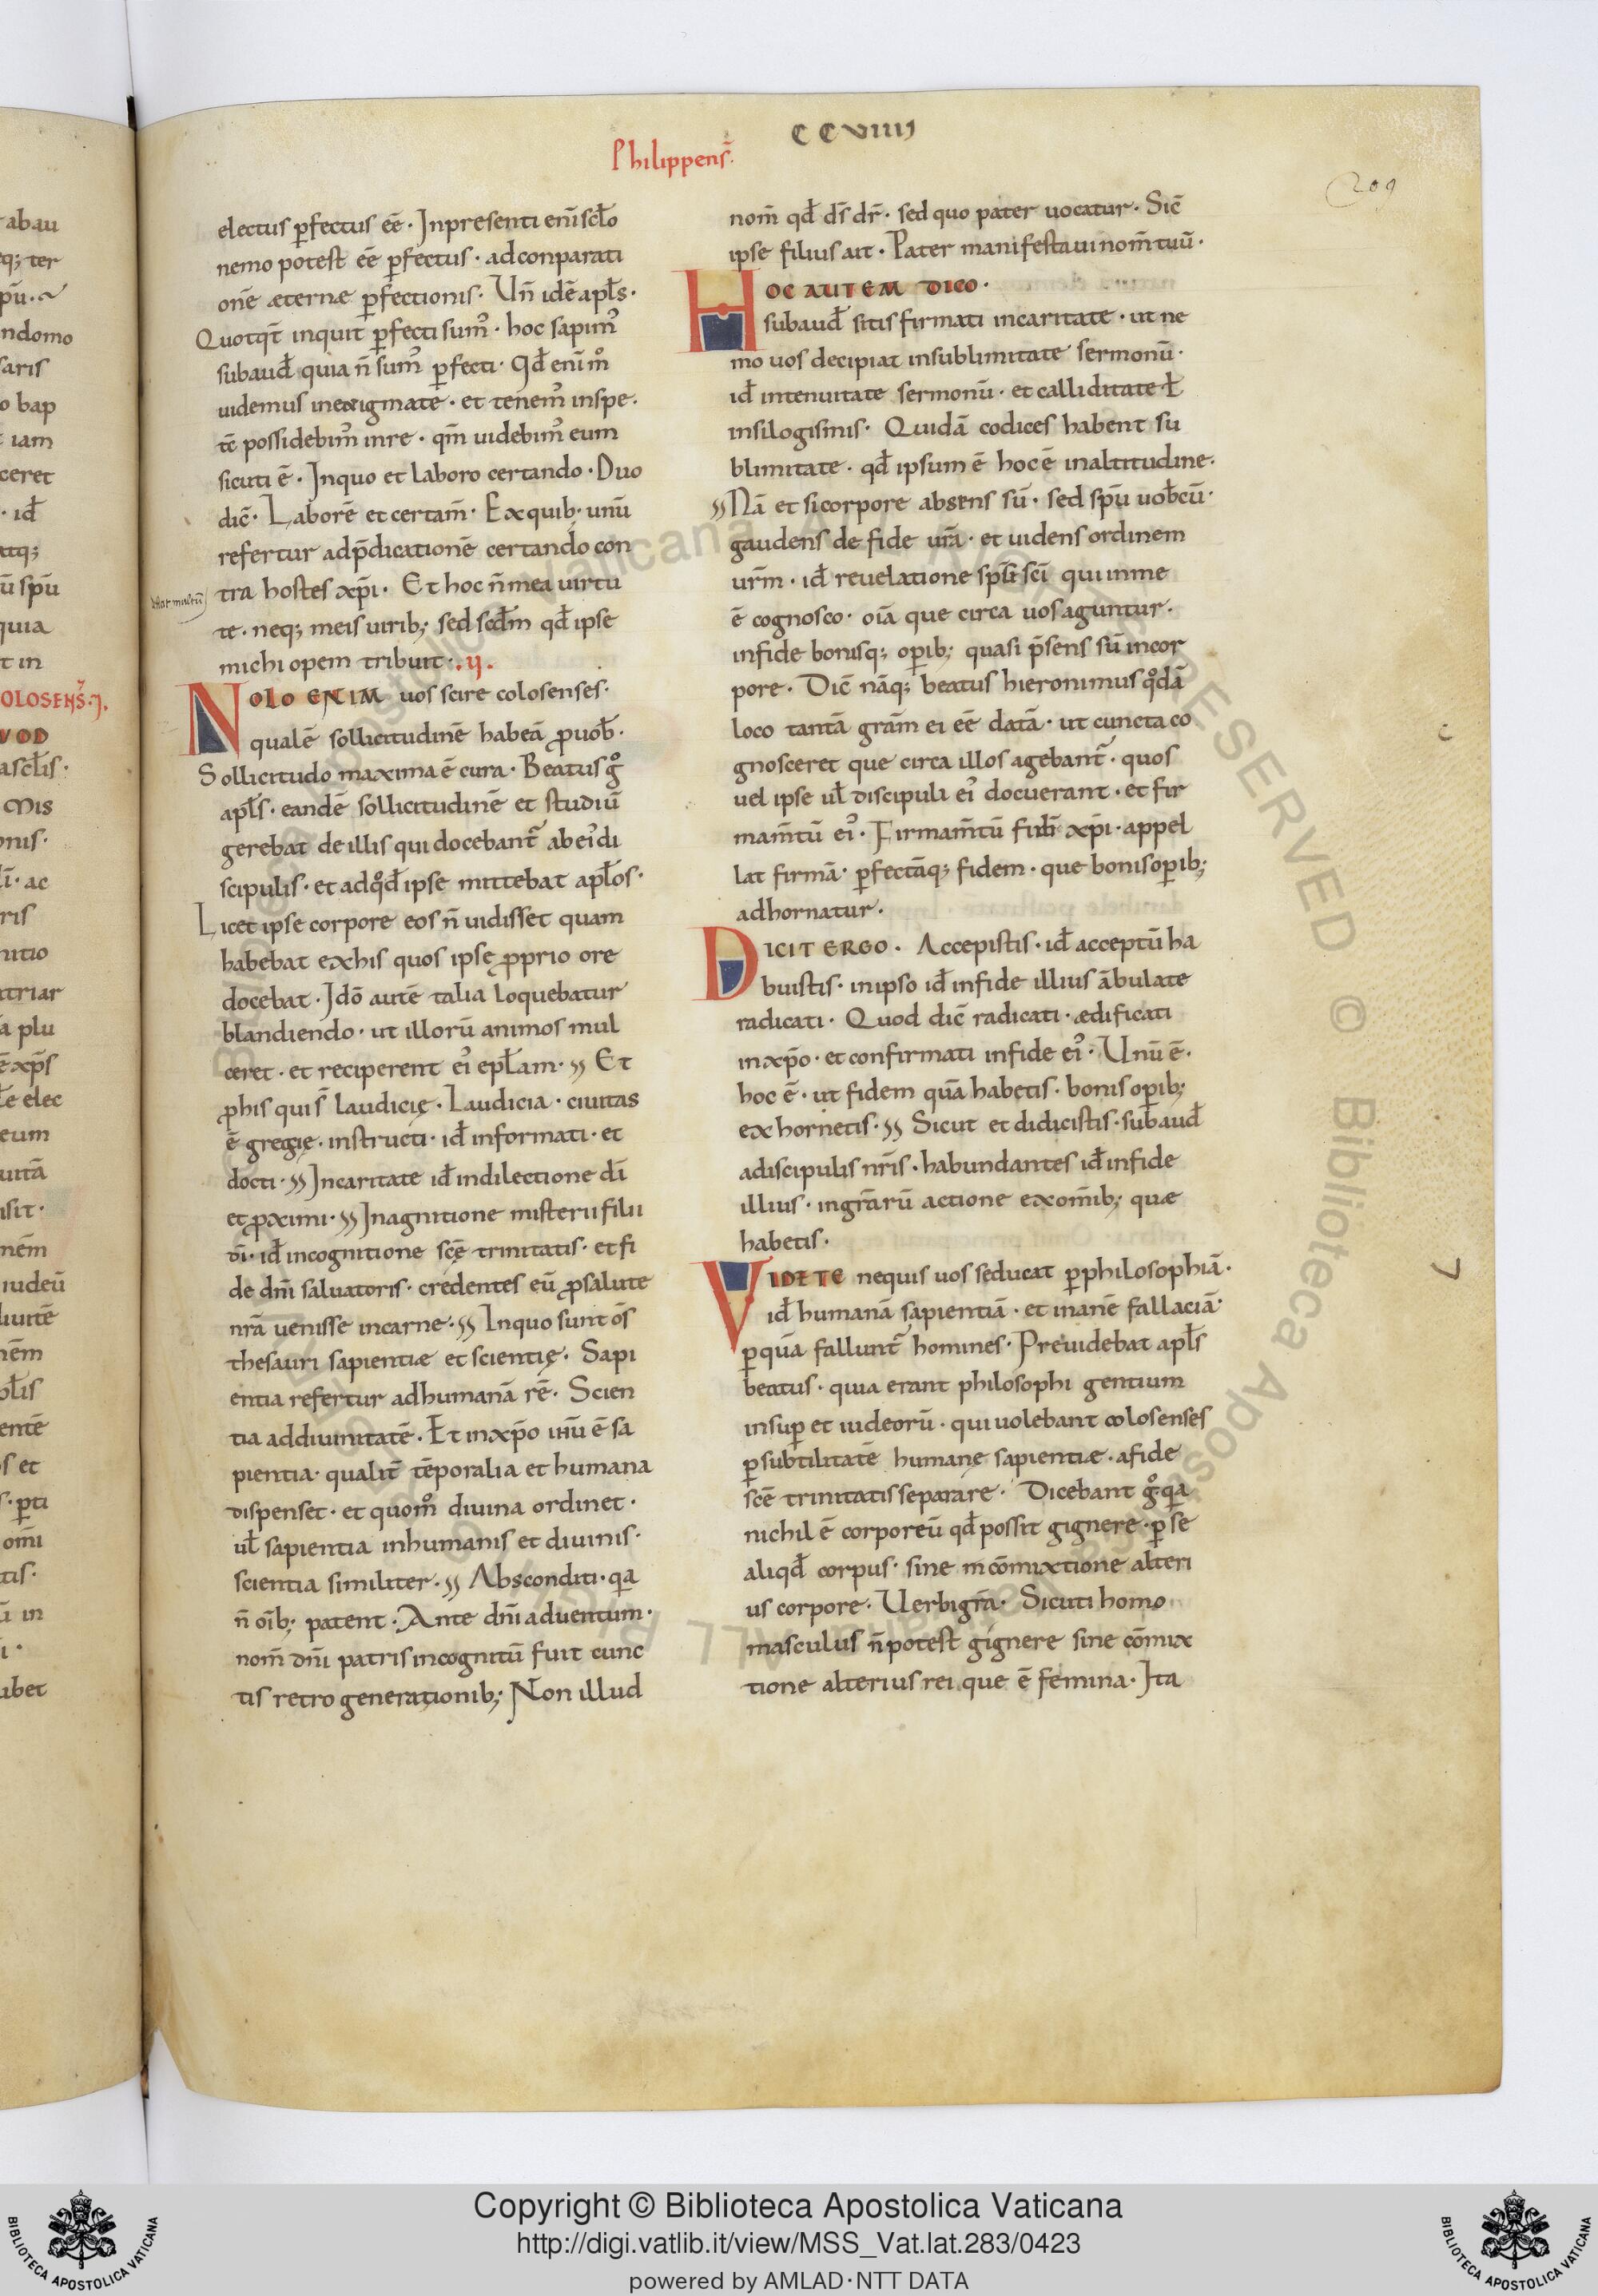 CCVIIII
Philippens̄.
209
electus p̄fectus eē · Inpresenti eni sc̄lo
nemo potest eē p̄fectus · adconparati
onē æternæ p̄fectionis · Un̄ idē apl̄s ·
Quotqt̄ inquit p̄fecti sum᷒ · hoc sapim᷒
subaud̄ quia n̄ sum᷒ p̄fecti · Qd̄ eni mº
uidemus inenigmate · et tenem᷒ inspe ·
tē possidebim᷒ inre · qm̄ uidebim᷒ eum
sicuti ē · Inquo et laboro certando · Duo
dic̄ · Laborē et certam̄ · Ex quib · unū
refertur adp̄dicationē certando con
tra hostes xp̄i · Et hoc n̄ mea uirtu
te · neq; meis uirib; sed scd̄m qd̄ ipse
michi opem tribuit · .ıı.
NOLO ENIM uos scire colosenses ·
qualē sollicitudinē habeā ꝓuob̄ ·
Sollicitudo maxima ē cura · Beatus gº
apl̄s · eandē sollicitudinē et studiū
gerebat de illis qui docebant᷒ abei᷒ di
scipulis · et adqºd̄ ipse mittebat apl̄os ·
Licet ipse corpore eos n̄ uidisset quam
habebat exhis quos ipse ꝓprio ore
docebat · Idō autē talia loquebatur
blandiendo · ut illorū animos mul
ceret · et reciperent ei᷒ epl̄am · Et
ꝓhis qui s̄ laudicię · Laudicia · ciuitas
ē gregię · instructi · id̄ informati · et
docti · Incaritate id̄ indilectione dī
et ꝓximi · Inagnitione misterii filii
dī · id̄ incognitione scę̄ trinitatis · et fi
de dn̄i saluatoris · credentes eū ꝓsalute
nrā uenisse incarne · Inquo sunt ōs
thesauri sapientiæ et scientię · Sapi
entia refertur adhumanā rē · Scien
tia addiuinitatē · Et inxp̄o ihū ē sa
pientia · qualit̄ tēporalia et humana
dispenset · et quomº diuina ordinet ·
ul̄ sapientia inhumanis et diuinis ·
scientia similiter · Absconditi · qa
n̄ oīb; patent · Ante dn̄i aduentum ·
nom̄ dn̄i patris incognitū fuit cunc
tis retro generationib; Non illud
nom̄ qd̄ ds̄ dr̄ · sed quo pater uocatur · Sic̄
ipse filius ait · Pater manifestaui nom̄ tuū ·
HOC AUTEM DICO ·
subaud̄ sitis firmati incaritate · ut ne
mo uos decipiat insublimitate sermonū ·
id̄ intenuitate sermonū · et calliditate ł
insilogismis · Quidā codices habent su
blimitate · qd̄ ipsum ē hoc ē inaltitudine ·
Nā et sicorpore absens sū · sed spū uobcū ·
gaudens de fide urā · et uidens ordinem
urm̄ · id̄ reuelatione sps̄ sc̄i qui inme
ē cognosco · oīa que circa uos aguntur ·
infide bonisq; op̄ib; quasi p̄sens sū incor
pore · Dic̄ nāq; beatus hieronimus qºdā
loco tantā grām ei eē datā · ut cuncta co
gnosceret que circa illos agebant᷒ · quos
uel ipse ul̄ discipuli ei᷒ docuerant · et fir
mam̄tū ei᷒ · Firmam̄tū xp̄i · appel
lat firmā · p̄fectāq; fidem · que bonis op̄ib;
adhornatur ·
DICIT ERGO · Accepistis · id̄ acceptū ha
buistis · inipso id̄ infide illius ābulate
radicati · Quod dic̄ radicati · ædificati
inxp̄o · et confirmati infide ei᷒ · Unū ē ·
hoc ē · ut fidem quā habetis · bonis op̄ib;
exhornetis · Sicut et didicistis · subaud̄
adiscipulis nr̄is · habundantes id̄ infide
illius · ingrārū actione exom̄ib; quæ
habetis ·
VIDETE nequis uos seducat p̄philosophiā ·
id̄ humanā sapientiā · et inanē fallaciā ·
p̄quā fallunt᷒ homines · Preuidebat apl̄s
beatus · quia erant philosophi gentium
insup̄ et iudeorū · qui uolebant colosenses
p̄subtilitatē humane sapientiæ · afide
scē trinitatis separare · Dicebant gº qa
nichil ē corporeū qd̄ possit gignere · p̄ se
aliqd̄ corpus · sine cōmixtione alteri
us corpore · Uerbigrā · Sicuti homo
masculus n̄ potest gignere sine cōmix
tione alterius rei que ē femina · Ita
Copyright © Biblioteca Apostolica Vaticana
http://digi.vatlib.it/view/MSS_Vat.lat.283/0423
powered by AMLAD·NTT DATA